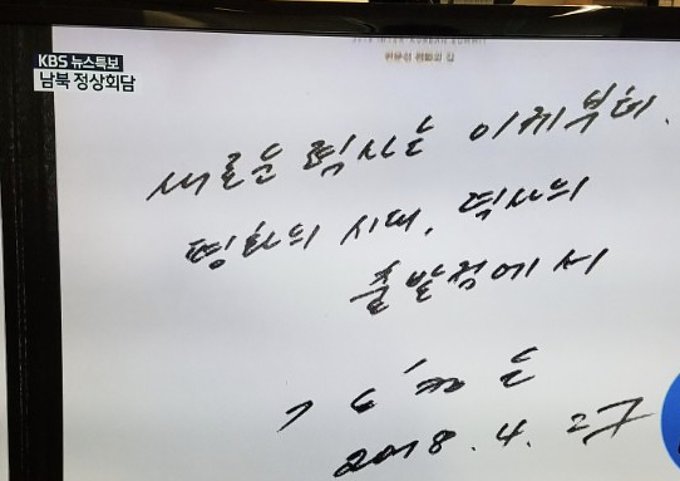 KBS 뉴스특보
남북 정상회담
2018 INTER-KOREAN SUMMIT
새로운 력사는 이제부터.
평화의 시대, 력사의
출발점에서
김정은
2018. 4. 27